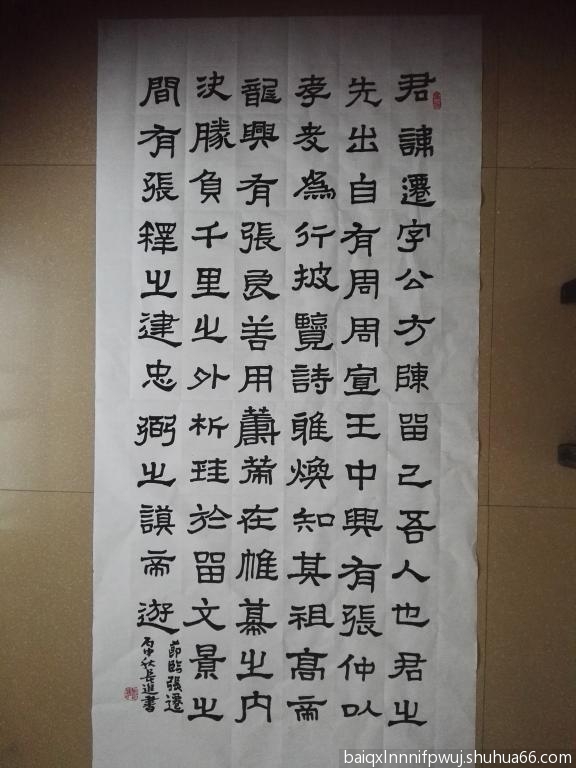 君諱遷字公方陳留己吾人也君之
先出自有周周宣王中興有張仲以
孝友為行披覽詩雅煥知其祖高帝
龍興有張良善用籌策在帷幕之內
決勝負千里之外析珪於留文景之
間有張釋之建忠弼之謨帝遊
節臨張遷
丙申秋長進書
baiqxlnnnifpwuj.shuhua66.com